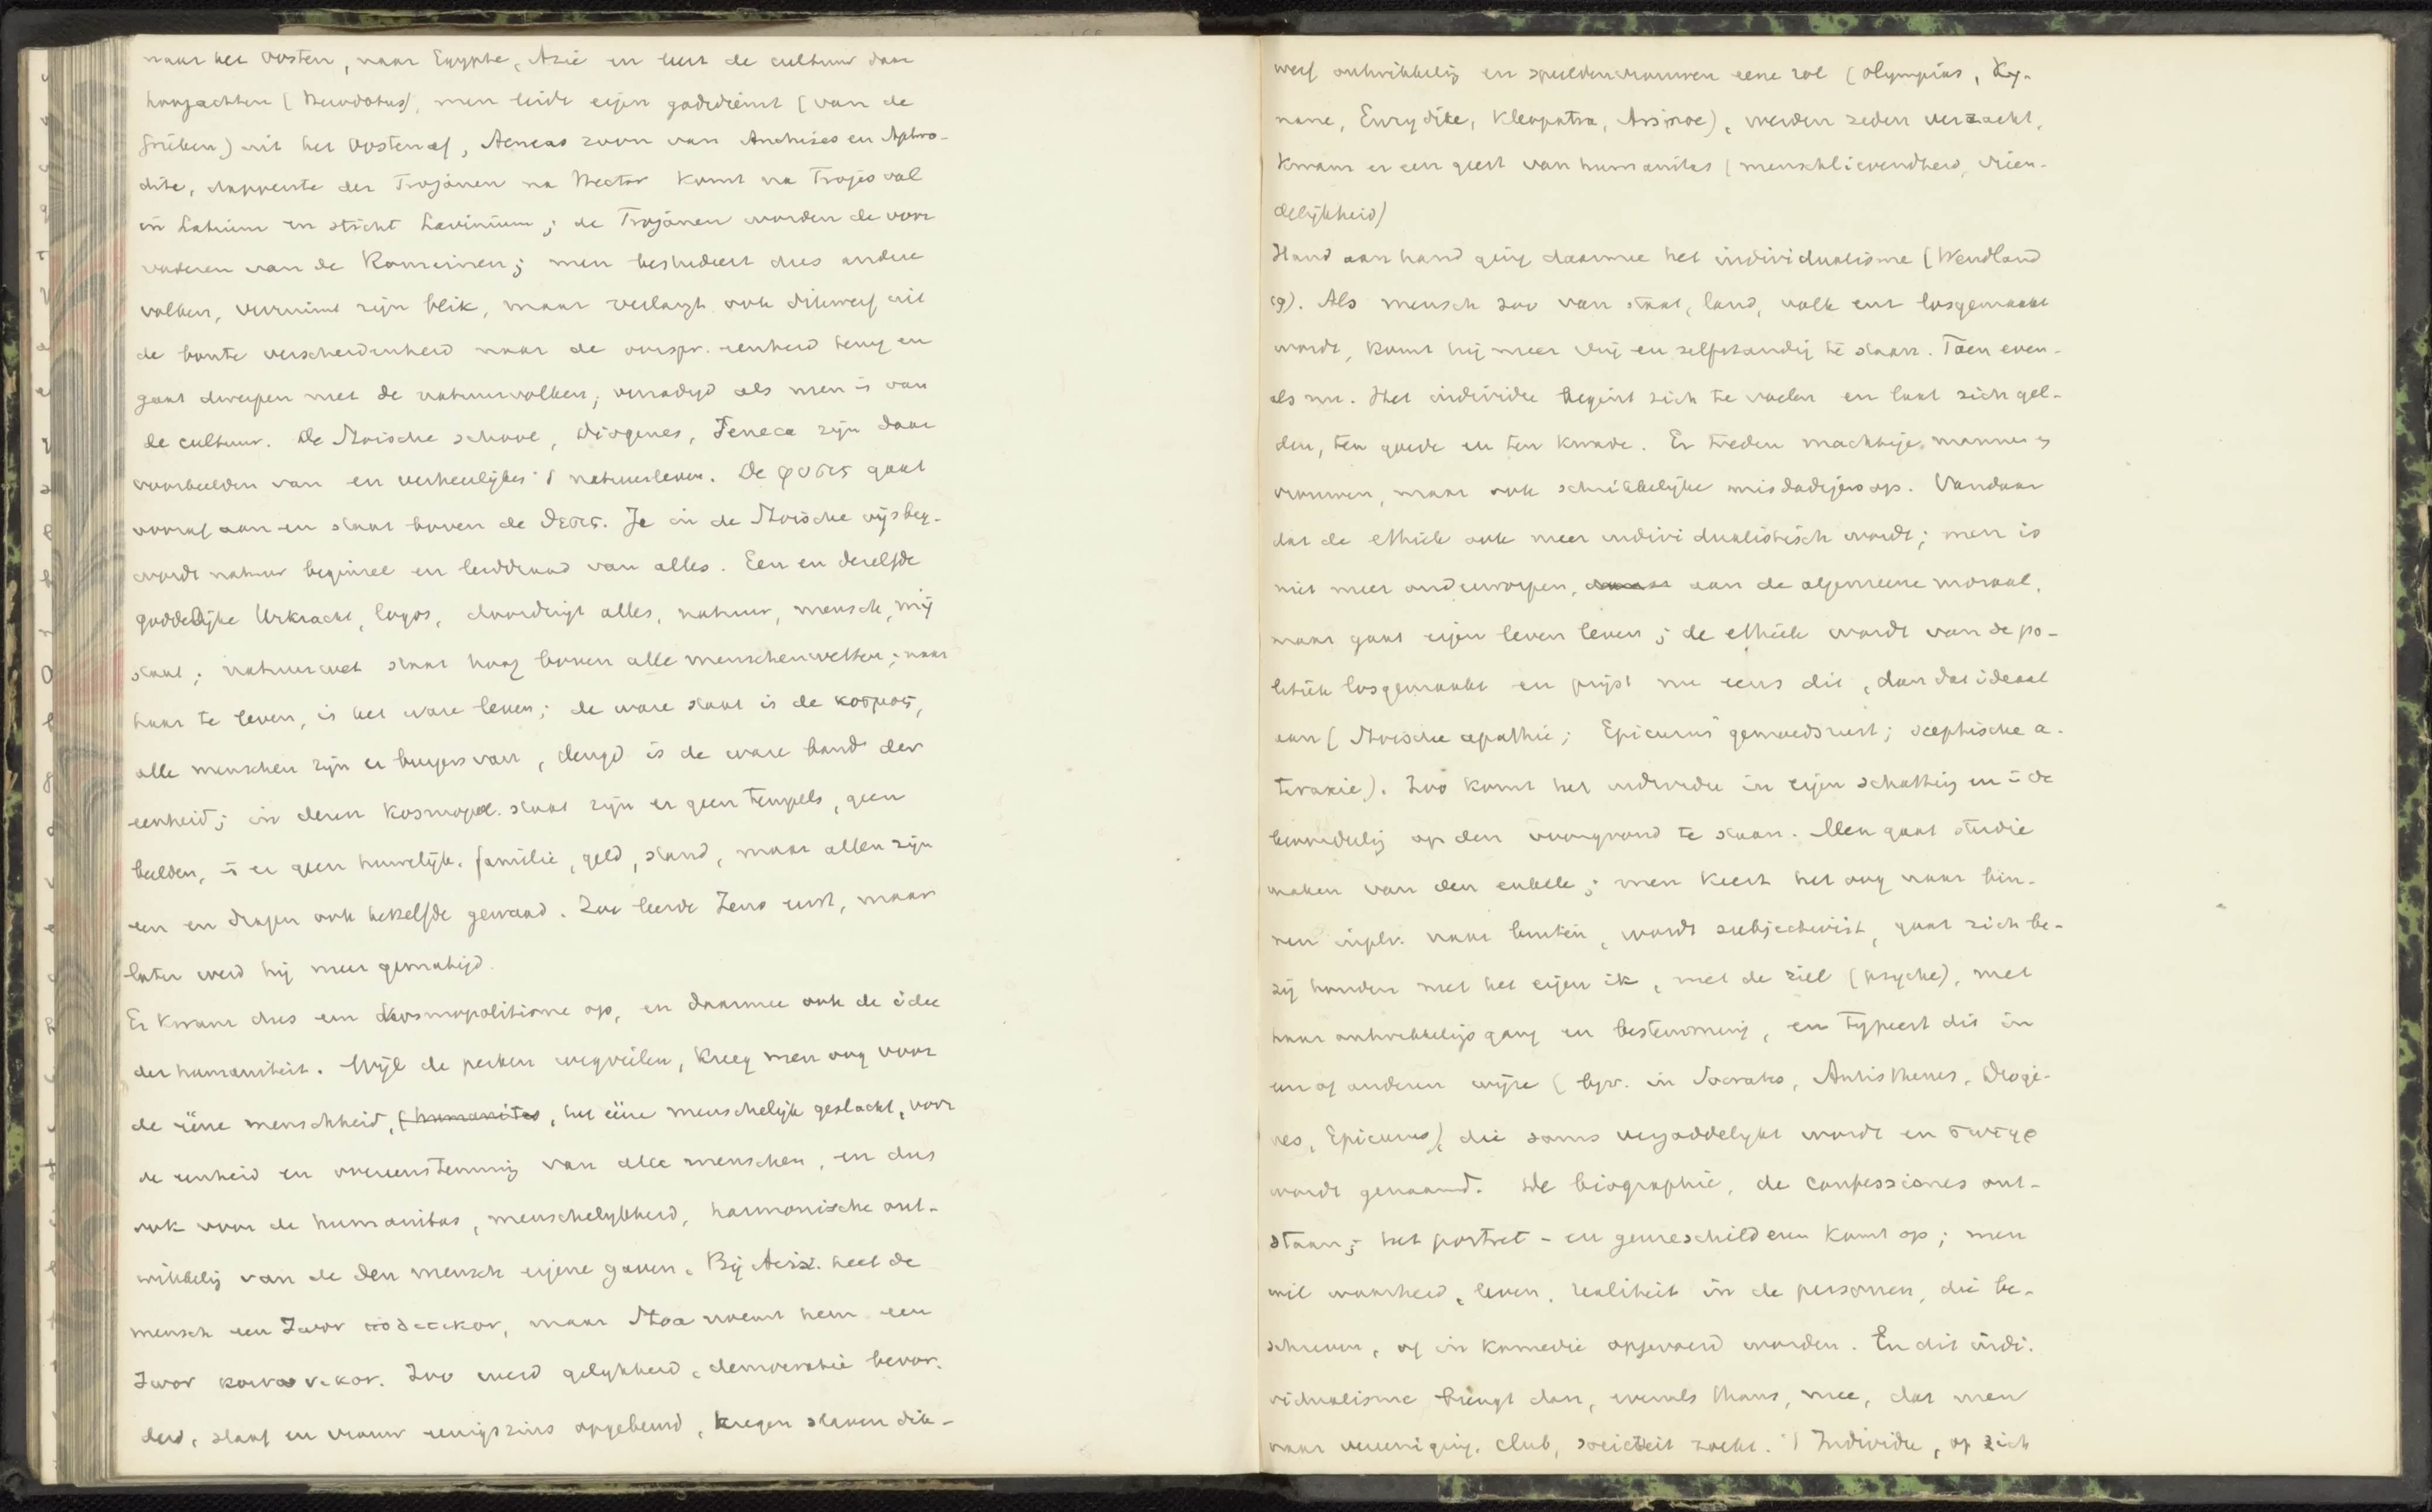 naar het Oosten, naar Egypte, Azië en leert de cultuur daar
hoogachten (Herodotus), men leidt eigen godsdienst (van de
Grieken) uit het Oosten af, Aeneas zoon van Anchises en Aphro-
dite, dapperste der Trojanen na Hector komt na Trojes val
in Latium en sticht Lavinium; de Trojanen worden de voor
vaderen van de Romeinen; men bestudeert dus andere
volken, verruimt zijn blik, maar verlangt ook dikwerf uit
de bonte verscheidenheid naar de oorspr. eenheid terug en
gaat dwepen met de natuurvolken, verzadigd als men is van
de cultuur. De Stoische school, Diogenes, Seneca zijn daar
voorbeelden van en verheerlijken 't natuurleven. De φυσις gaat
vooraf aan en staat boven de θεσις. Ja in de Stoische wijsbeg.
wordt natuur beginsel en leiddraad van alles. Een en dezelfde
goddelijke Urkracht, logos, doordringt alles, natuur, mensch,
staat; natuurwet staat hoog boven alle menschenwetten; naar
haar te leven, is het ware leven; de ware staat is de κοσμος,
alle menschen zijn er burgers van, deugd is de ware band der
eenheid; in dezen kosmopol. staat zijn er geen tempels, geen
beelden, is er geen huwelijk, familie, geld, stand, maar allen zijn
een en dragen ook hetzelfde gewaad. Zoo leerde Zeno eerst, maar
later werd hij meer gematigd.
Er kwam dus een kosmopolitisme op, en daarmee ook de idee
der humaniteit. Wijl de perken wegvielen, kreeg men oog voor
de ééne menschheid, (humanitas, het ééne menschelijk geslacht, voor
de eenheid en overeenstemming van alle menschen, en dus
ook voor de humanitas, menschelijkheid, harmonische ont-
wikkeling van de den mensch eigene gaven. Bij Arist. heet de
mensch een Ζωον πολιτικον, maar Stoa noemt hem een
Ζωον κοινωνικον. Zoo werd gelijkheid, democratie bevor-
derd, slaaf en vrouw eenigszins opgebeurd, kregen slaven dik-
werf ontwikkeling en speelden vrouwen eene rol (Olympias, Ky-
nane, Eurydike, Kleopatra, Arsinoe), werden zeden verzacht,
kwam er een geest van humanitas (menschlievendheid, vrien-
delijkheid)
Hand aan hand ging daarmee het individualisme (Wendland
19). Als mensch zoo van staat, land, volk enz losgemaakt
wordt, komt hij meer vrij en zelfstandig te staan. Toen even-
als nu. Het individu begint zich te voelen en laat zich gel-
den, ten goede en ten kwade. Er treden machtige mannen en
vrouwen, maar ook schrikkelijke misdadigers op. Vandaar
dat de ethiek ook meer individualistisch wordt; men is
niet meer onderworpen, aan de algemeene moraal,
maar gaat eigen leven leven; de ethiek wordt van de po-
litiek losgemaakt en prijst nu eens dit, dan dat ideaal
aan (Stoische apathie; Epicurus' gemoedsrust; sceptische a-
taraxie). Zoo komt het individu in eigen schatting en in de
beoordeeling op den voorgrond te staan. Men gaat studie
maken van den enkele; men keert het oog naar bin-
nen inpl. v. naar buiten, wordt subjectivist, gaat zich be-
zig houden met het eigen ik, met de ziel (psyche), met
haar ontwikkelingsgang en bestemming, en typeert dit in
een of anderen wijze (bijv. in Socrates, Antisthenes, Dioge-
nes, Epicurus), die soms vergoddelijkt wordt en σωτηρ
wordt genaamd. De biographie, de confessiones ont-
staan; het portret- en genreschilderen komt op; men
wil waarheid, leven, realiteit in de personen, die be-
schreven, of in komedie opgevoerd worden. En dit indi-
vidualisme brengt dan, evenals thans, mee, dat men
naar vereeniging, club, societeit zoekt. 't Individu, op zich